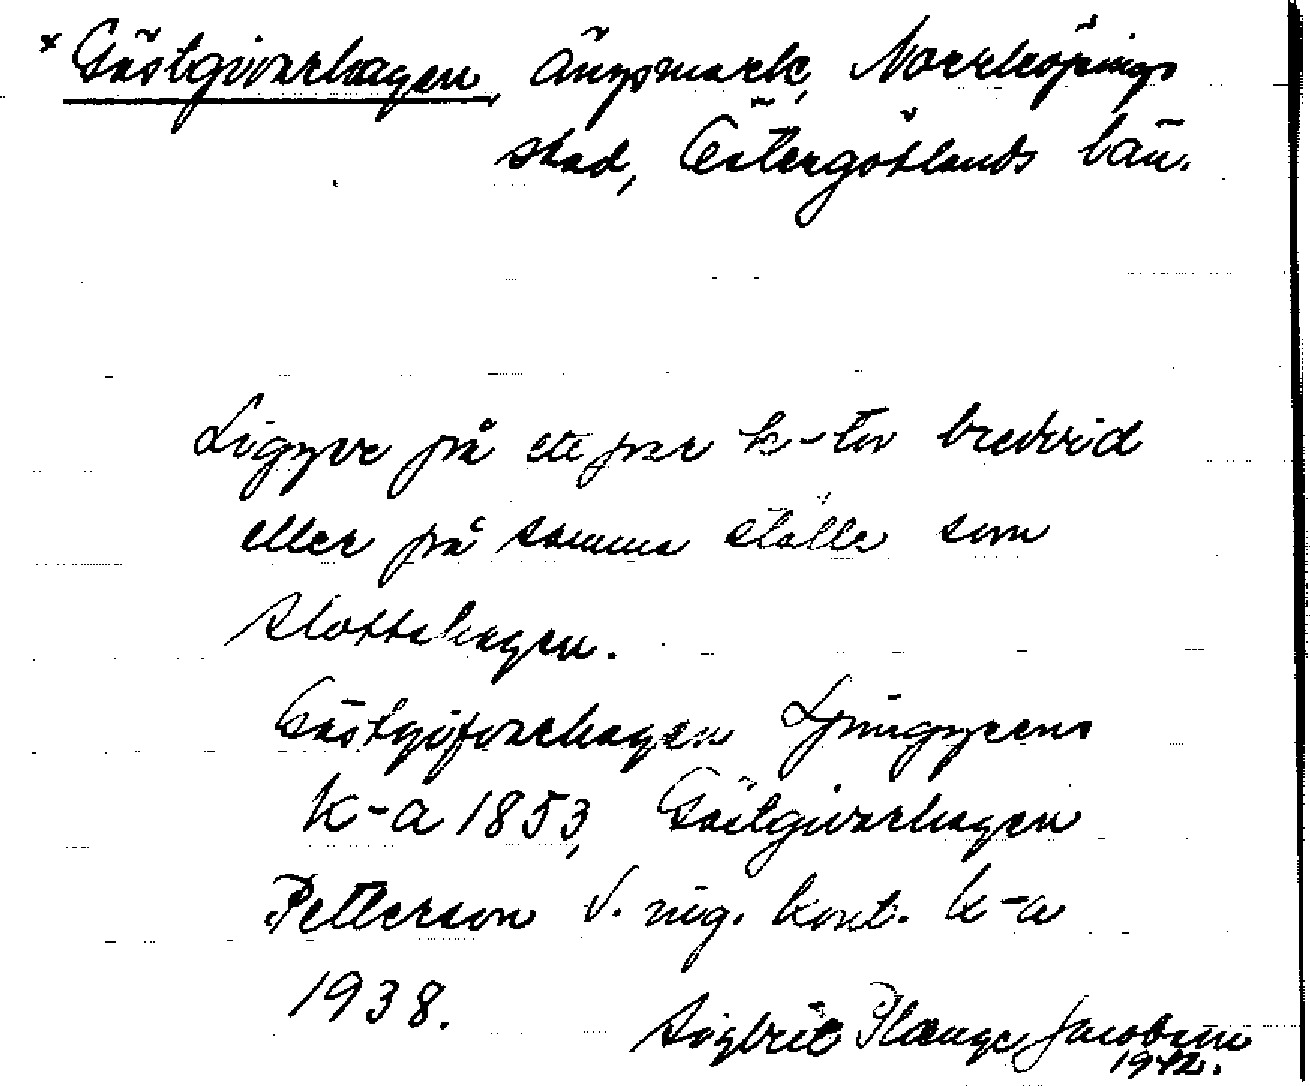 * Gästgivarhagen, ängsmark, Norrköpings
stad, Östergötlands län.
på ett par k-tor bredvid
eller på samma ställe som
Slottshagen.
Gästgifvarhagen Ljunggrens
k-a 1853, Gästgivarhagen
Petterson V. ing. kont. k-a
1938.
Sigbrit Plænge Jacobson
1942.